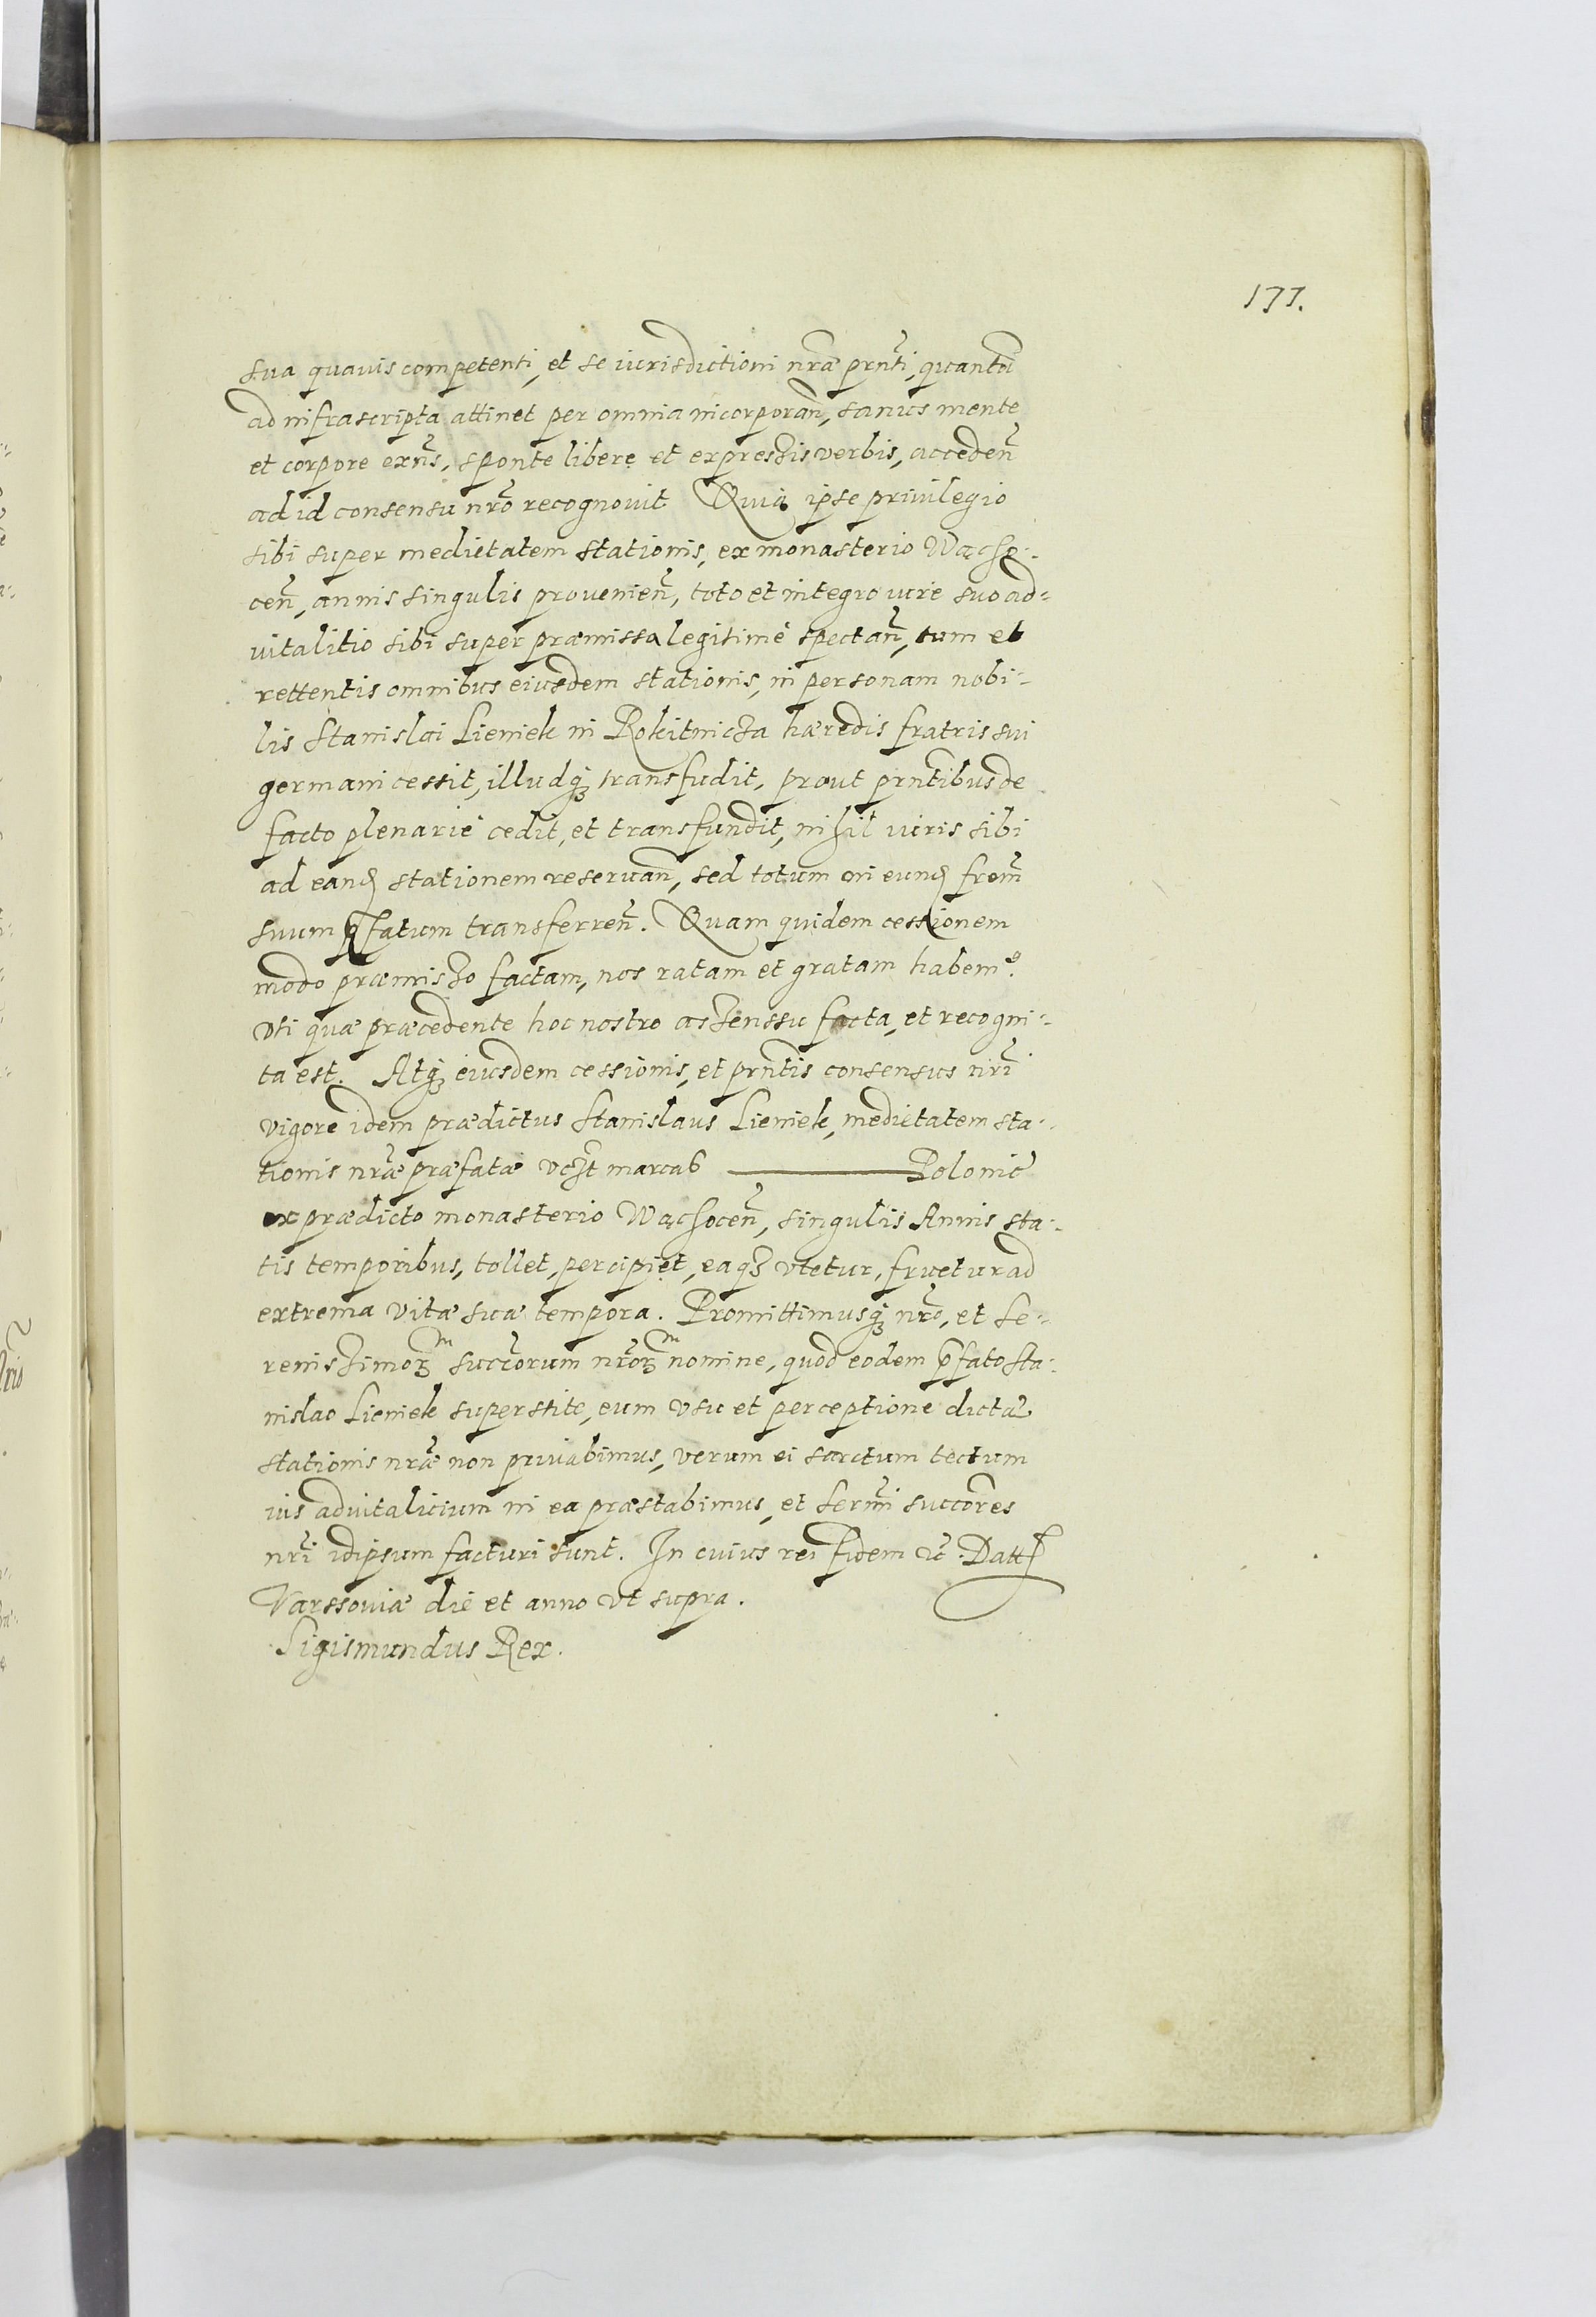 171.
sua quavis competenti, et se iurisdictioni nr̃a prñti, quantũ
ad infrascripta attinet per omnia incorporañ, sanus mente
et corpore exñs, sponte libere et expressis verbis, accedeñ
ad id consensu nr̃o recognovit Quia ipse privilegio
sibi super medietatem stationis, ex monasterio Wącho-
ceñ, annis singulis provenieñ, toto et integro iure suo ad-
vitalitio sibi super præmissa legitimè spectañ, tum et
rettentis omnibus eiusdem stationis, in personam nobi-
lis Stanislai Lieniek in Rokitnicza hæredis fratris sui
germani cessit, illudq; transfudit, prout prñtibus de
facto plenariè cedit, et transfundit, nihil iuris sibi
ad eand stationem reservañ, sed totum in eund frem̃
suum p̃fatum transferreñ. Quam quidem cessionem
modo præmisso factam, nos ratam et gratam habem9.
Vti quæ præcedente hoc nostro assenssu facta, et recogni-
ta est. Atq; eiusdem cessionis, et prñtis consensus nr̃i
vigore idem prædictus Stanislaus Lieniek, medietatem sta-
tionis nr̃æ præfatæ vczt marcas ——— Polonic̃
ex prædicto monasterio Wąchoceñ, singulis Annis sta-
tis temporibus, tollet, percipiet, eaq; vtetur, fruetur ad
extrema vitæ suæ tempora. Promittimusq; nr̃o, et Se-
renissimoꝝ succ̃orum nr̃oꝝ nomine, quod eodem p̃fato Sta-
nislao Lieniek superstite, eum vsu et perceptione dictæ
stationis nr̃æ non privabimus, verum ei sarctum tectum
ius advitalicium in ea præstabimus, et Serm̃i succõres
nr̃i idipsum facturi sunt. In cuius rei fidem etc̃. Datt
Varssoviæ die et anno vt supra.
Sigismundus Rex.